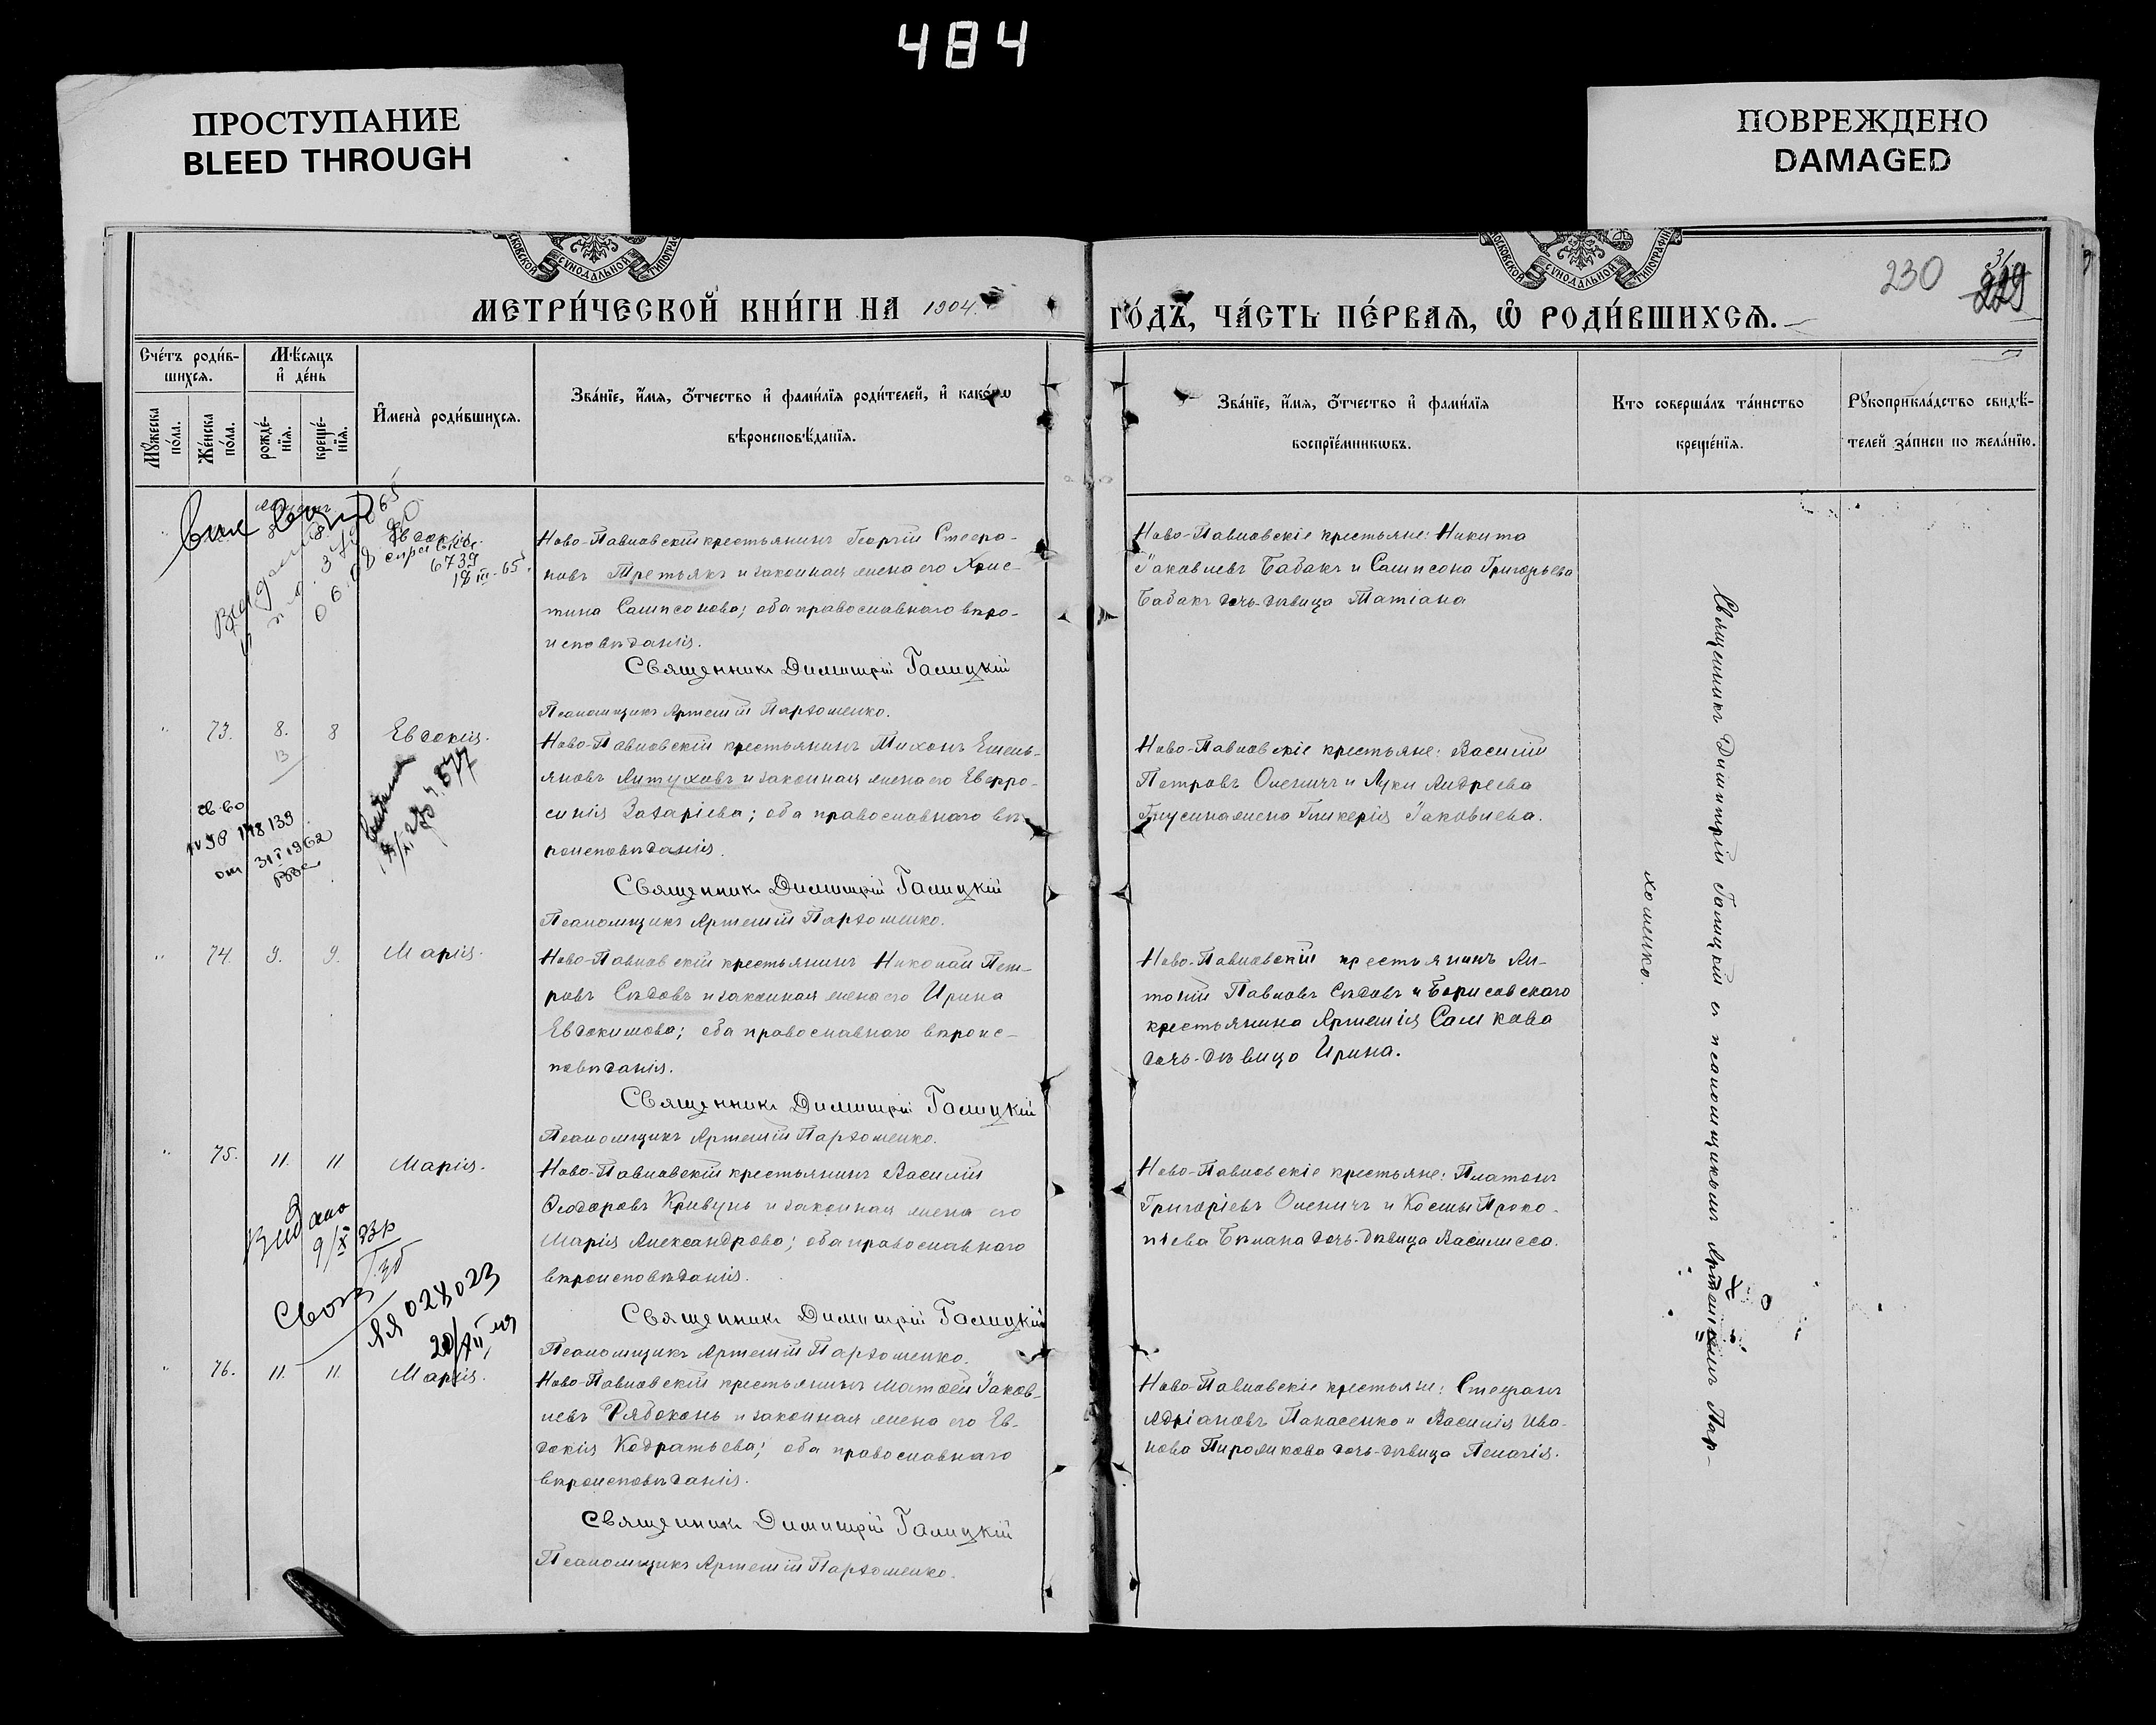 484
ПРОСТУПАНИЕ
BLEED THROUGH
ПОВРЕЖДЕНО
DAMAGED
МОСКОВСКОЙ СѴНОДАЛЬНОЙ ТИПОГРАФІИ
МОСКОВСКОЙ СѴНОДАЛЬНОЙ ТИПОГРАФІИ
230 229
МЕТРИ́ЧЕСКОЙ КНИ́ГИ НА 1904
ГО́ДЪ, ЧА́СТЬ ПЕ́РВАЯ, Ѡ РОДИ́ВШИХСЯ.
Сче́тъ роди́в-
шихся.
Мꙋ́жеска по́ла.
Же́нска по́ла.
Мѣ́сяцъ
и҆ де́нь
рожде́-
нїя.
креще́-
нїя.
И҆мена̀ роди́вшихся.
Зва́нїе, и҆́мя, ѻ҆́тчество и҆ фами́лїя роди́телей, и҆ како́гѡ
вѣроисповѣ́данїя.
Зва́нїе, и҆́мя, ѻ҆́тчество и҆ фами́лїя
воспрїе́мникѡвъ.
Кто соверша́лъ та́инство
креще́нїя.
Рꙋкоприкла́дство свидѣ́-
телей за́писи по жела́нїю.
Евдокія.
6739
18 III-65.
Ново-Павловскій крестьянинъ Георгій Стефа-
новъ Третьякъ и законная жена его Хрис-
тина Сампсонова; оба православнаго вѣро-
исповѣданія.
Священникъ Димитрій Галицкій
Псаломщикъ Артемій Пархоменко.
Ново-Павловскіе крестьяне: Никита
Іаковлевъ Бабакъ и Сампсона Григорьева
Бабакъ дочь-дѣвица Татіана
73. 8. 8 Евдокія.
13
Ново-Павловскій крестьянинъ Тихонъ Емель-
яновъ Алтуховъ и законная жена его Евфро-
синія Захаріева; оба православнаго вѣ-
роисповѣданія.
Священникъ Димитрій Галицкій
Псаломщикъ Артемій Пархоменко.
Ново-Павловскіе крестьяне: Василій
Петровъ Оленичъ и Луки Андреева
жена Гликерія Іаковлева.
св-во
148139
от 31 I 1962
74. 9. 9. Марія.
Ново-Павловскій крестьянинъ Николай Пет-
ровъ Сѣдовъ и законная жена его Ирина
Евдокимова; оба православнаго вѣроис-
повѣданія.
Священникъ Димитрій Галицкій
Псаломщикъ Артемій Пархоменко.
Ново-Павловскій крестьянинъ Ан-
тоній Павловъ Сѣдовъ и Борисовскаго
крестьянина Артемія Самкова
дочь-дѣвица Ирина.
75. 11. 11 Марія.
Ново-Павловскій крестьянинъ Василій
Ѳеодоровъ Кривунь и законная жена его
Марія Александрова; оба православнаго
вѣроисповѣданія.
Священникъ Димитрій Галицкій
Псаломщикъ Артемій Пархоменко.
Ново-Павловскіе крестьяне: Платонъ
Григоріевъ Оленичъ и Космы Проко-
піева Бѣлана дочь-дѣвица Василисса.
Видано
ЯЯ 028023
76. 11. 11. Марія.
Ново-Павловскій крестьянинъ Матѳей Іаков-
левъ Рябоконь и законная жена его Ев-
докія Кодратьева; оба православнаго
вѣроисповѣданія.
Священникъ Димитрій Галицкій
Псаломщикъ Артемій Пархоменко.
Ново-Павловскіе крестьяне: Стефанъ
Адріановъ Панасенко и Василія Ива-
нова Пирожкова дочь-дѣвица Пелагія.
Священникъ Димитрій Галицкій съ псаломщикомъ Артеміемъ Пар-
хоменко.